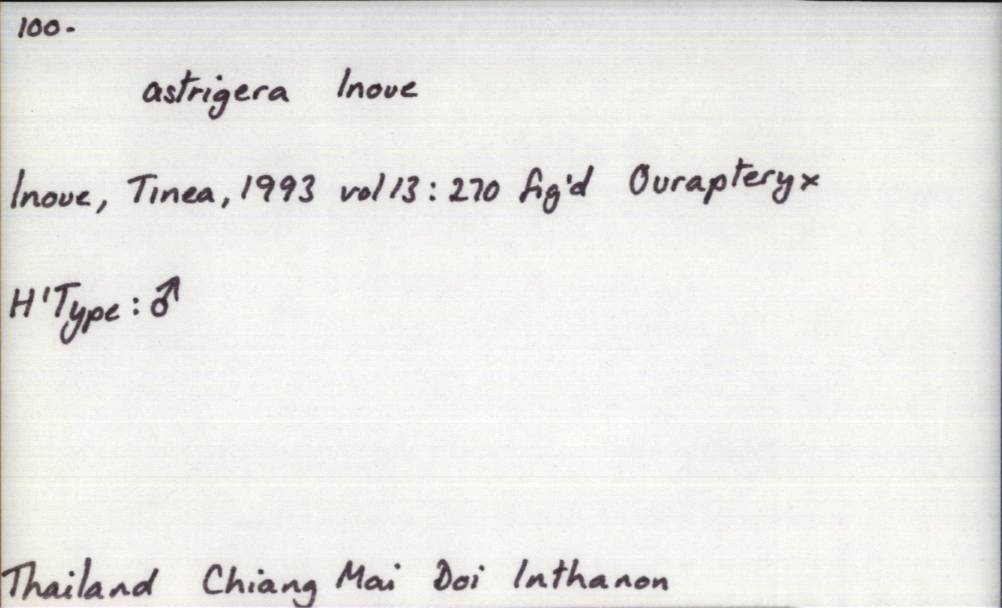 100-
astrigera Inoue
Inoue, Tinea, 1993 vol 13: 270 fig'd Ourapteryx
H'Type: ♂
Thailand Chiang Mai Doi Inthanon